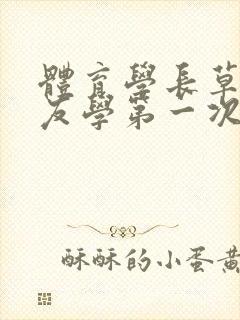 體育學長草
友學第一次
酥酥的小蛋黃